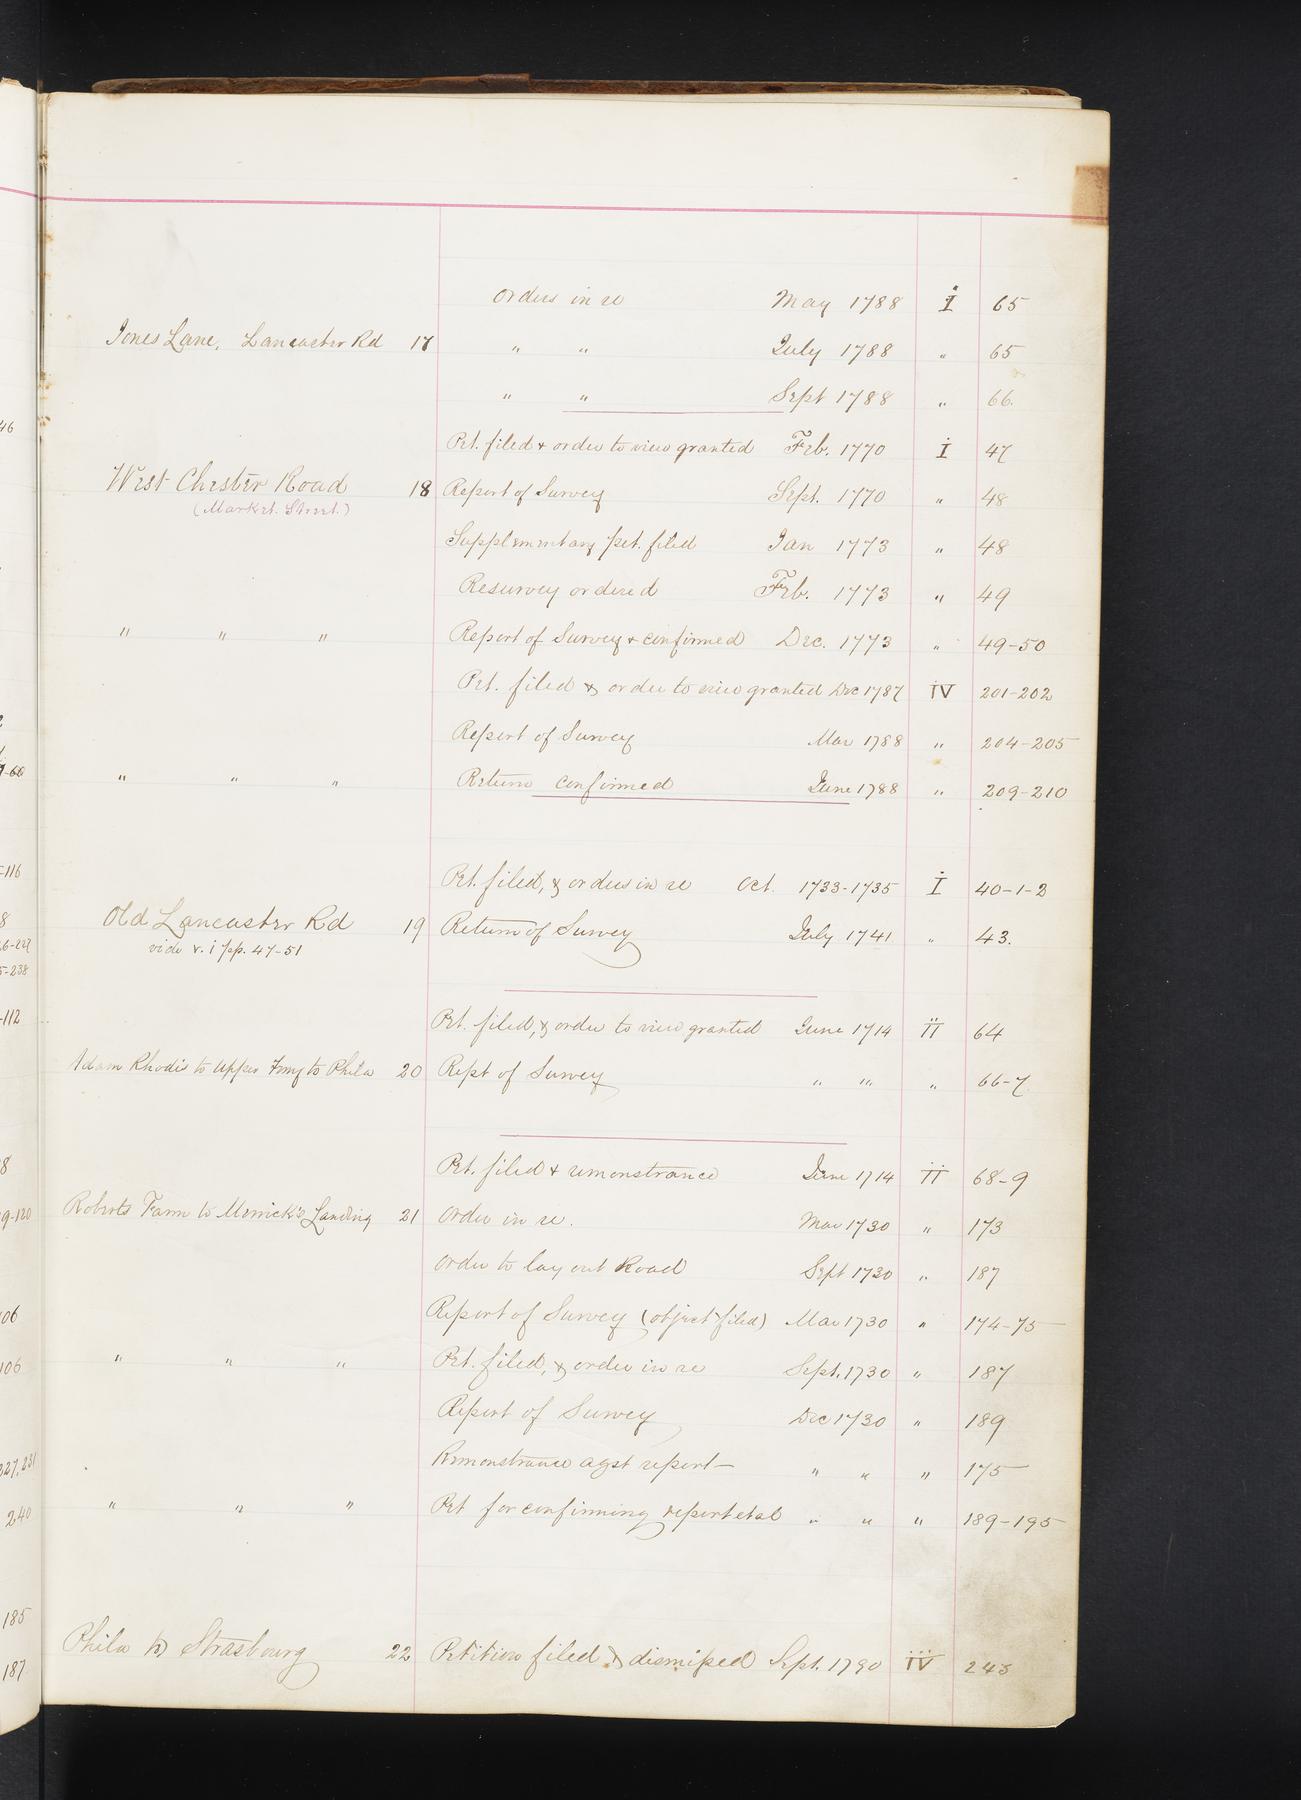 Orders in re May 1788 I 65
Jones Lane, Lancaster Rd 17 " " July 1788 " 65
" " Sept 1788 " 66.
Pet. filed & order to view granted Feb. 1770 I 47
West Chester Road 18 Report of Survey Sept. 1770 " 48
(Market. Street.)
Supplementary pet. filed Jan 1773 " 48
Resurvey ordered Feb. 1773 " 49
" " " Report of Survey & confirmed Dec. 1773 " 49-50
Pet. filed & order to view granted Dec 1787 IV 201-202
Report of Survey Mar 1788 " 204-205
" " " Return confirmed June 1788 " 209-210
Pet. filed, & orders in re Oct. 1733-1735 I 40-1-2
Old Lancaster Rd 19 Return of Survey July 1741 " 43.
vide v. i pp. 47-51
Pet. filed, & order to view granted June 1714 II 64
Adam Rhodis to Upper Ferry to Phila 20 Rept of Survey " " " 66-7
Pet. filed & remonstrance June 1714 II 68-9
Roberts Farm to Mirrick's Landing 21 Order in re. Mar 1730 " 173
Order to lay out Road Sept 1730 " 187
Report of Survey (object filed) Mar 1730 " 174-75
" " " Pet. filed, & order in re Sept. 1730 " 187
Report of Survey Dec 1730 " 189
Remonstrance agst report " " " 175
" " " Pet for confirming report etal " " " 189-195
Phila to Strasbourg 22 Petition filed & dismissed Sept. 1790 IV 243
46
-60
-116
8
5-238
-112
8
9-120
106
106
227, 231
240
185
187